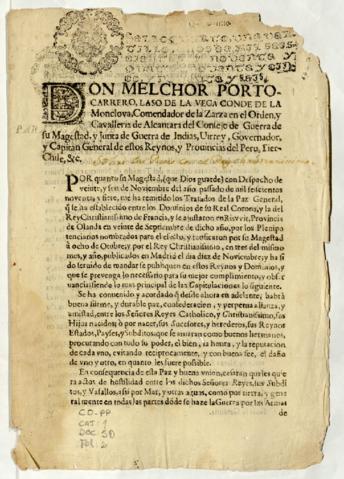 DON MELCHOR PORTO-
CARRERO, LASO DE LA VEGA CONDE DE LA
Monclova, Comendador de la Zarza en el Orden, y
Cavalleria de Alcantara del Consejo de Guerra de
su Magestad, y Junta de Guerra de Indias, Virrey, Governador,
y Capitan General de estos Reynos, y Provincias del Peru, Tier-
Chile, &c.
POR quanto su Magestad, (que Dios guarde) con Despacho de
veinte, y seis de Noviembre del año pasado de mil seiscientos
noventa, y siete, me ha remitido los Tratados de la Paz General,
q̃ se ha establecido entre los Dominios de su Real Corona, y la del
Rey Christianissimo de Francia, y se ajustaron en Risvvit, Provincia
de Olanda en veinte de Septiembre de dicho año, por los Plenipo
tenciarios nombrados para el efecto, y ratificaron por su Magestad
à ocho de Otubre, y por el Rey Christianissimo, en tres del mismo
mes, y año, publicados en Madrid el dia diez de Noviembre; y ha si
do servido de mandar se publiquen en estos Reynos y Dominios,
que se prevenga lo necessario para su mejor cumplimiento, y obser
vancia siendo lo mas principal de las Capitulaciones lo siguiente.
Se ha convenido y acordado q̃ desde ahora en adelante, habrà
buena firme, y durable paz, confederacion, y perpetua alianza, y
amistad, entre los Señores Reyes Catholico, y Christianissimo, sus
Hijos nacidos ò por nacer, sus successores, y herederos, sus Reynos
Estados, Payses, y subditos, que se amaran como buenos hermanos,
procurando con todo su poder, el bien, la honra, y la reputacion
de cada vno, evitando reciprocamente, y con buena fee, el daño
de vno y otro, en quanto les fuere possible.
En consequencia de esta Paz y buena vnion, cessaran qualesquie
ra actos de hostilidad entre los dichos Señores Reyes, sus Subdi
tos, y Vasallos, assi por Mar, y otras aguas, como por tierra, y gene
ralmente en todas las partes dõde se haze la Guerra por las Armas
de
CO-PP
CAT: 1
DOC: 50
FOL: 2